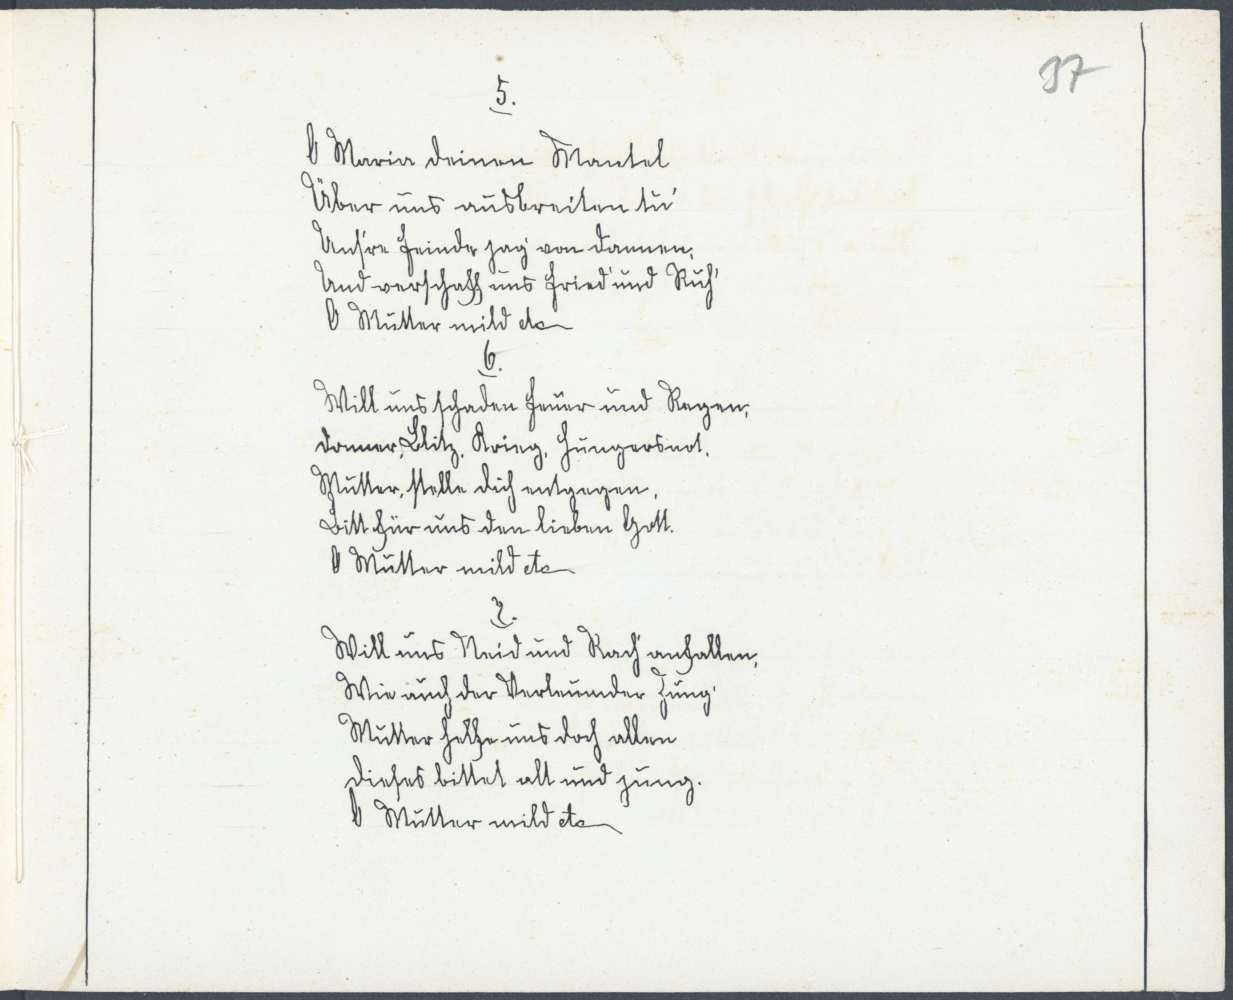 37
5.
O Maria deinen Mantel
Über uns ausbreiten tu'
Uns're Feinde jag' von dannen,
Und verschaff uns Fried' und Ruh'
O Mutter mild etc
6.
Will uns schaden Feuer und Regen,
Donner, Blitz, Krieg, Hungersnot.
Mutter, stelle dich entgegen,
Bitt für uns den lieben Gott.
O Mutter mild etc
7.
Will uns Neid und Rach' anfallen,
Wie auch der Verleumder Zung'
Mutter helfe uns doch allen
Dieses bittet alt und jung.
O Mutter mild etc